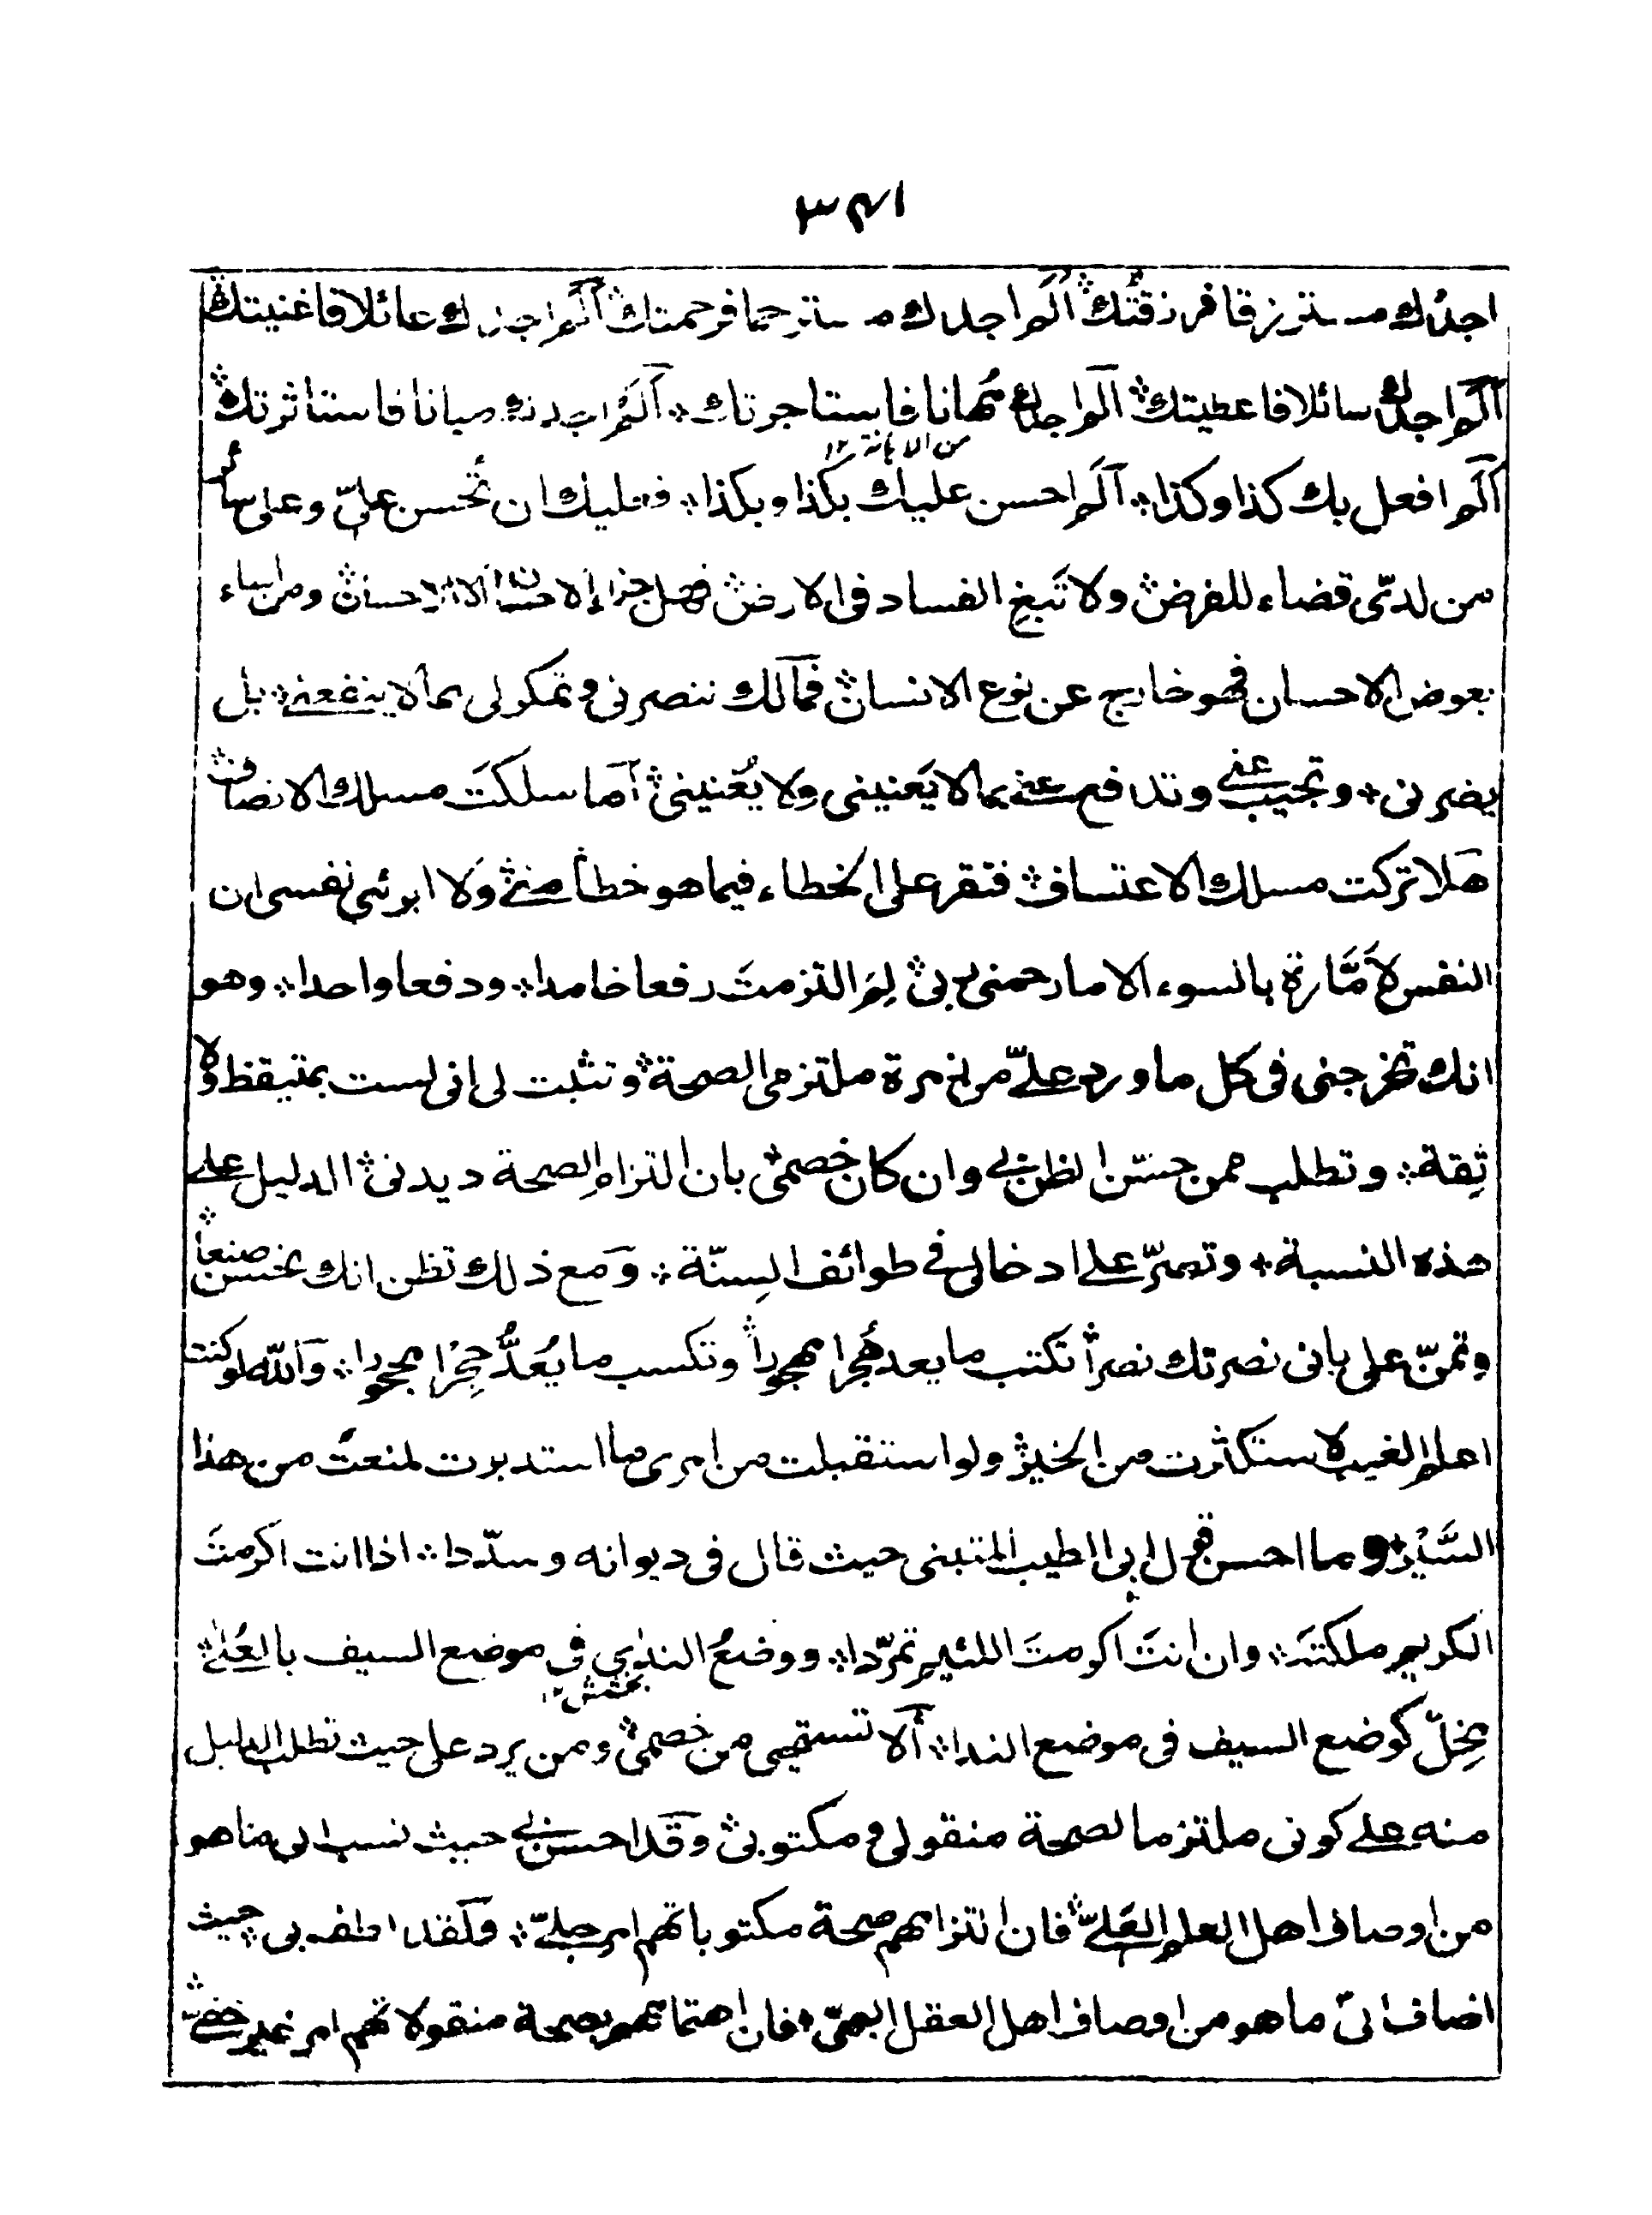 ٣٤١
اجدك مسترزقا فرزقتك ؞ الم اجدك مسترحما فرحمتك ؞ الم اجدك عائلا فاغنيتك ؞
الم اجدك سائلا فاعطيتك ؞ الم اجدك مهانا فاستاجرتك ؞ الم اجدك مبانا فاستاثرتك ؞
من الابانة ١٢
الم افعل بك كذا وكذا ؞ الم احسن عليك بكذا وبكذا ؞ فعليك ان تُحسن عليّ وعلى سائر
من لدىّ قضاء للفرض ؞ ولا تَبغِ الفساد فى الارض ؞ فهل جزاء الاحسان الا الاحسان ؞ ومن اساء
بعوض الاحسان فهو خارج عن نوع الانسان ؞ فمالك تنصرنى وتمكر لى بما لا ينفعنى ؞ بل
يضرنى ؞ وتجيب عنى وتدافع عنى بما لا يَعنينى ولا يُغنينى ؞ اما سلكتَ مسلك الانصاف ؞
هلا تركت مسلك الاعتساف ؞ فتقر على الخطاء فيما هو خطأ منى ؞ ولا ابرئ نفسى ان
النفس لاَمَّارة بالسوء الا ما رحمنى ربى ؞ لِمَ التزمتَ رفعا خامدا ؞ ودفعا واحدا ؞ وهو
انك تخرجنى فى كل ما ورد علىّ من زمرة ملتزمى الصحة ؞ وتثبت لى انى لست بمتيقظ ولا
ثِقة ؞ وتطلب ممن حسّن الظن بى وان كان خصمى ؞ بان التزام الصحة ديدنى ؞ الدليل على
هذه النسبة ؞ وتصرّ على ادخالى فى طوائف السِنّة ؞ ومع ذلك تظن انك تحسن صنعا ؞
وتمنّ على بانى نصرتك نصرا ؞ تكتب ما يعد هُجرا مهجورا ؞ وتكسب ما يُعَدُّ حِجْرا محجورا ؞ والله لو كنت
اعلم الغيب لاستكثرت من الخير ؞ ولو استقبلت من امرى ما استدبرت لمنعتُ من هذا
السَّيْر ؞ وما احسن قول ابى الطيب المتنبى حيث قال فى ديوانه وسدّدا ؞ اذا انت اكرمتَ
الكريم ملكتَه ؞ وان انتَ اكرمتَ اللئيم تمرّدا ؞ ووضعُ الندٰى فى موضع السيف بالعُلىٰ ؞
بخشش ١٢
مُخِلّ كوضع السيف فى موضع الندا ؞ ألا تستحيى من خصمى ؞ ومن يرد على حيث تطلب الدليل
منه على كونى ملتزما لصحة منقولى ومكتوبى ؞ وقد احسن بى حيث نسب الى ما هو
من اوصاف اهل العلم العَلىّ ؞ فان التزامهم صحة مكتوباتهم امر جلىّ ؞ ولقد الطف بى حيث
اضاف الىّ ما هو من اوصاف اهل العقل البهىّ ؞ فان اهتمامهم بصحة منقولاتهم امر غير خفىّ ؞